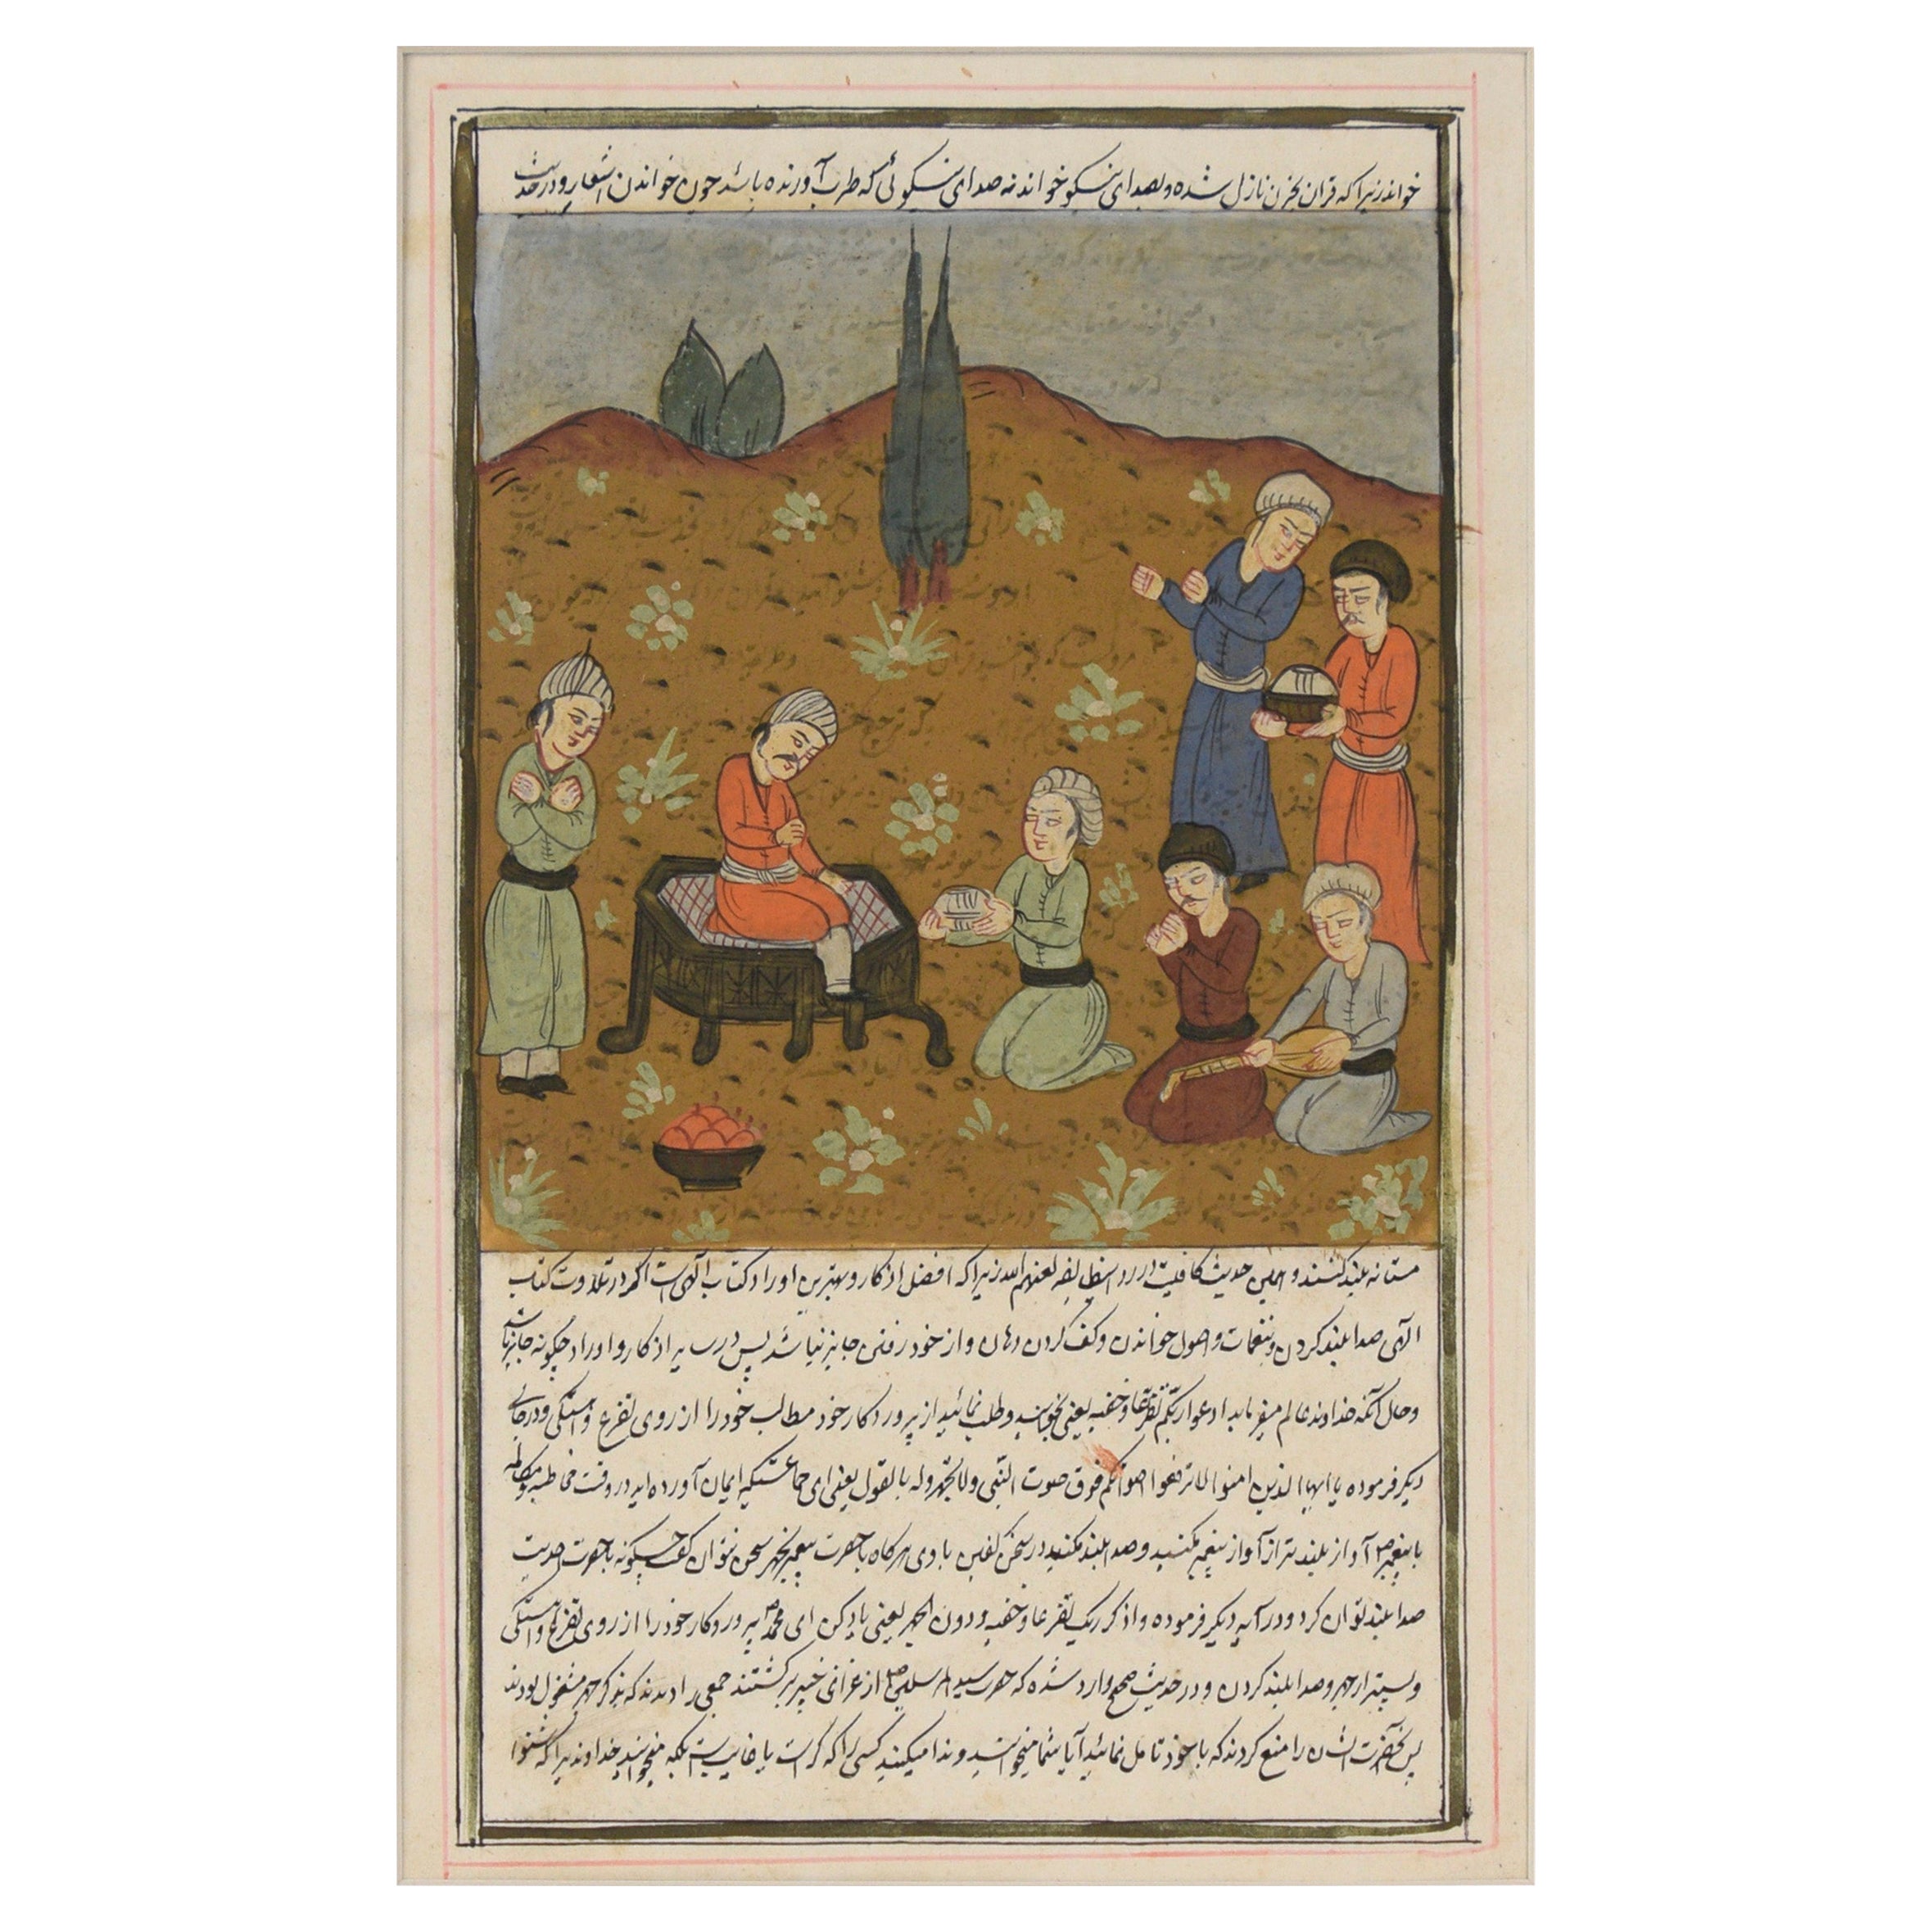 خواند زیرا که قران بحزن نازل شده و بصدای نیکو خواندنه صدای نیکوئی که طرب آورنده باشد چون خواندن اشعار و در حدیث
مستانه بلند کنند و این حدیث کافیست در رد این طایفه لعنهم الله زیرا که افضل اذکار و بهترین اوراد کتاب الهی است اگر در تلاوت کتاب
الهی صدا بلند کردن و بنغمات و اصول خواندن و کف کردن دهان و از خود رفتن جایز نباشد پس در سایر اذکار و اوراد چگونه جایز باشد
و حال آنکه خداوند عالم میفرماید ادعوا ربکم تضرعا و خفیه یعنی بخوانید و طلب نمائید از پروردکار خود مطالب خود را از روی تضرع و آهستکی و در جای
دیکر فرموده یا ایها الذین امنوا لا ترفعوا اصواتکم فوق صوت النبی ولا تجهروا له بالقول یعنی ای جماعتیکه ایمان آورده اید در وقت مخاطبه و مکالمه
با پیغمبر ص آواز بلندتر از آواز پیغمبر مکنید و صدا بلند مکنید در سخن کفتن با وی هرکاه با حضرت پیغمبر بجهر سخن نتوان کفت چکونه با حضرت احدیت
صدا بلند توان کرد و در آیه دیکر فرموده واذکر ربک تضرعا و خفیه و دون الجهر یعنی یاد کن ای محمد ص پروردکار خود را از روی تضرع و آهستکی
و پستتر از جهر و صدا بلند کردن و در حدیث صحیح وارد شده که حضرت سید المرسلین ص از غزای خیبر برکشتند جمعی را دیدند که بذکر جهر مشغول بودند
پس آنحضرت ایشان را منع کردند که با خود تامل نمائید آیا شما میخوانید و ندا میکنید کسی را که کر است یا غایب است بلکه میخوانید خداوندیرا که شنوا